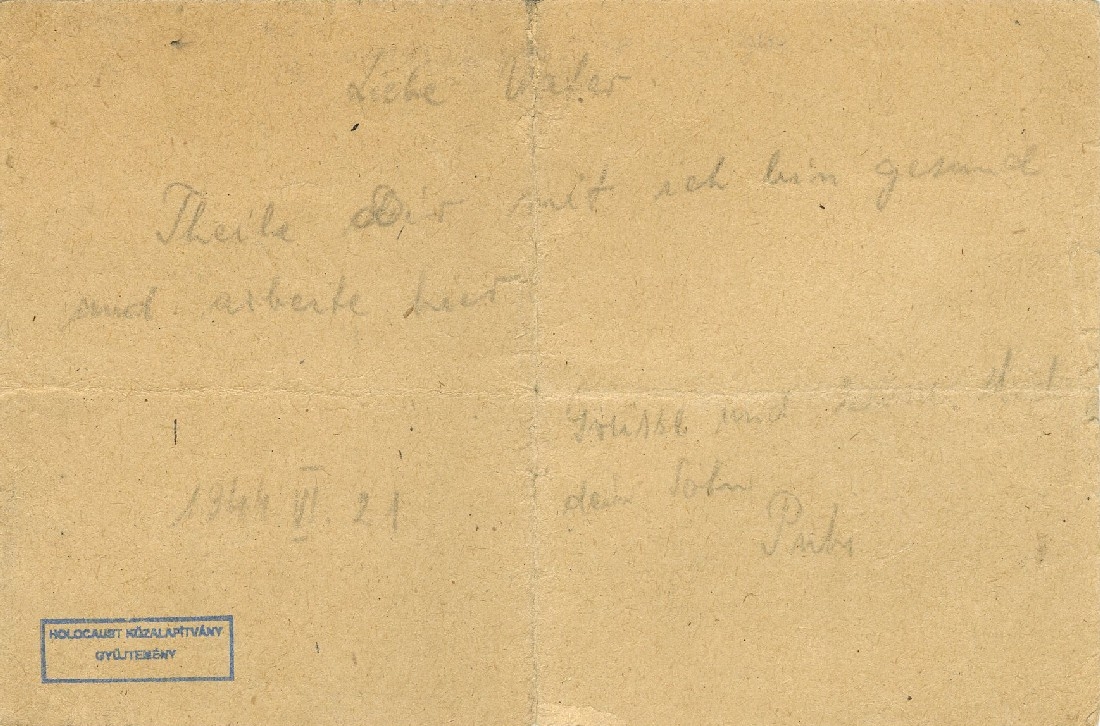 Liebe Vater
Theile Dir mit ich bin gesund
und arbeite hier
und
dein Sohn
1944 VI. 21
HOLOCAUST KÖZALAPÍTVÁNY
GYŰJTEMÉNY